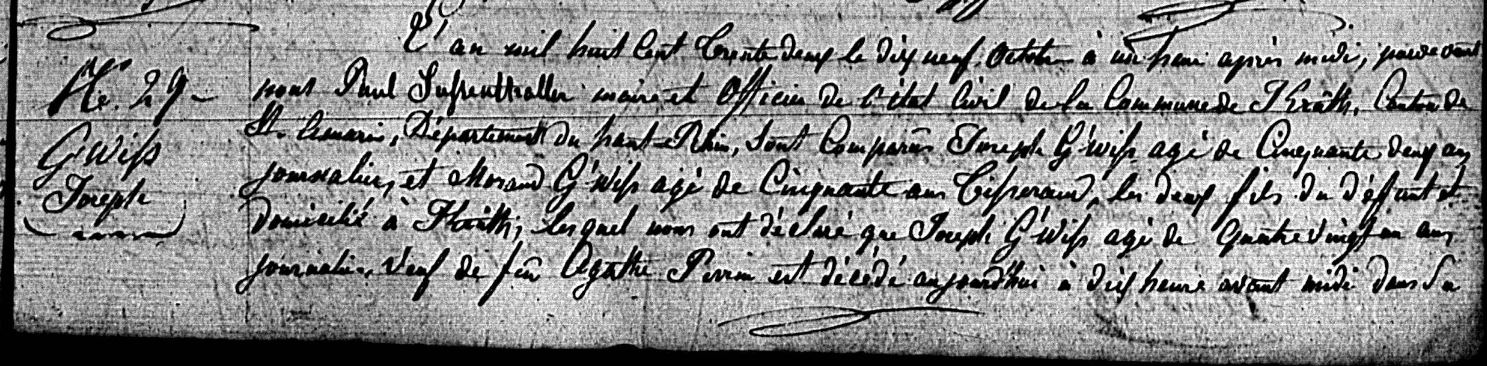 L'an mil huit Cent Trente deux le dix neuf Octobre à un heure après midi, pardevant
No. 29
nous Paul maire et Officier de l'état Civil de la Commune de Krüth, Canton de
St. Amarin, Département du haut-Rhin, Sont Comparus Joseph G'wiss agé de Cinquante deux ans
G'wiss
Joseph
journalier, et Morand G'wiss agé de Cinquante ans Tisserand, les deux fils du défunt et
domicilié à Krüth, lesquel nous ont déclaré que Joseph G'wiss agé de quatre vingt un ans
journalier, veuf de feu Agathe Perrin est décédé aujourd'hui à dix heure avant midi dans Sa